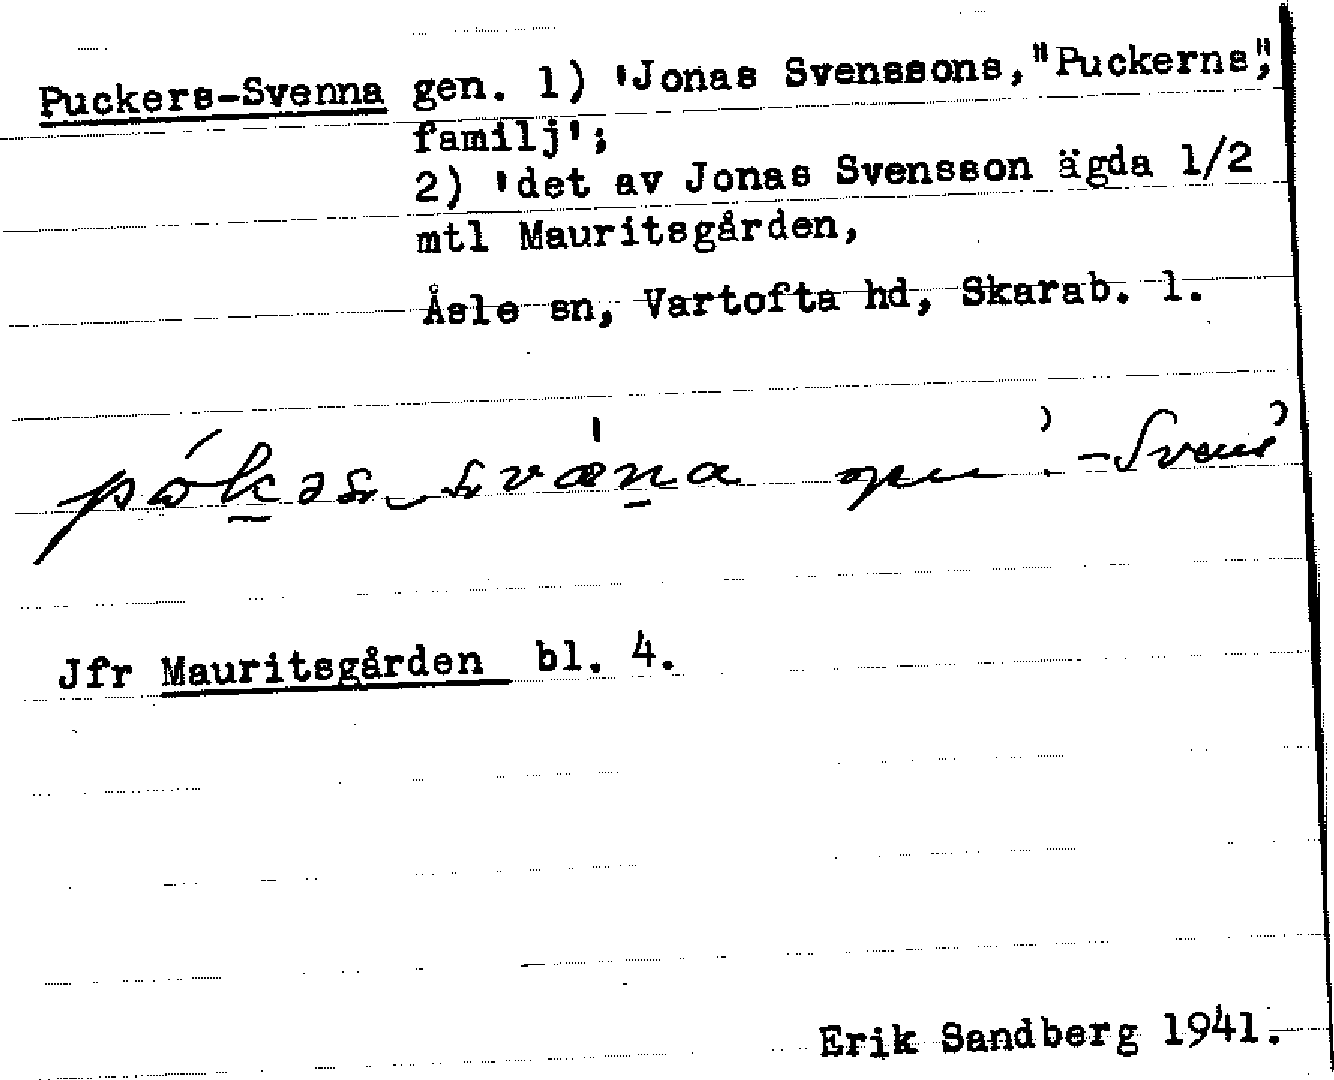 Puckers-Svenna gen. 1) 'Jonas Svenssons, "Puckerns",
familj';
2) 'det av Jonas Svensson ägda 1/2
mtl Mauritsgården,
Åsle sn, Vartofta hd, Skarab. l.
Jfr Mauritsgården bl. 4.
Erik Sandberg 1941.